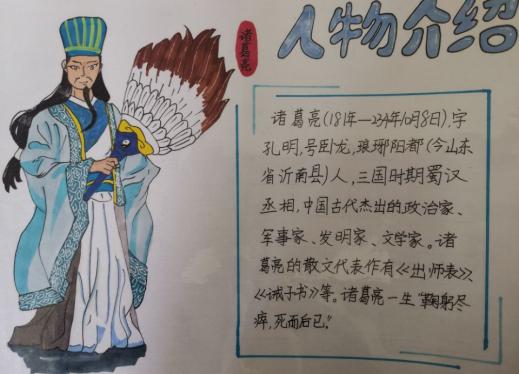 人物介绍
诸葛亮
诸葛亮(181年—234年10月8日),字
孔明,号卧龙,琅琊阳都(今山东
省沂南县)人,三国时期蜀汉
丞相,中国古代杰出的政治家、
军事家、发明家、文学家。诸
葛亮的散文代表作有《出师表》、
《诫子书》等。诸葛亮一生“鞠躬尽
瘁,死而后已”